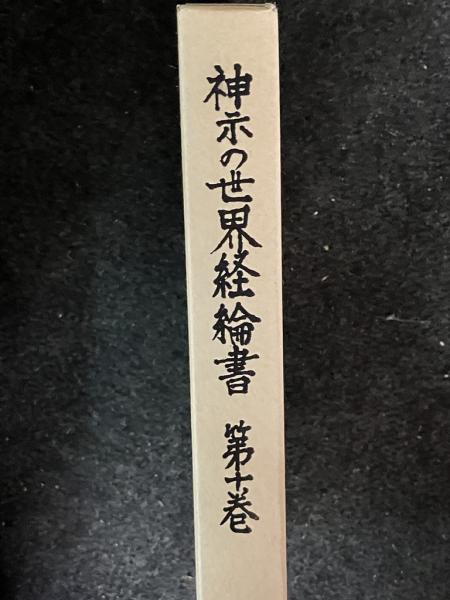 神示の世界経綸書 第十巻